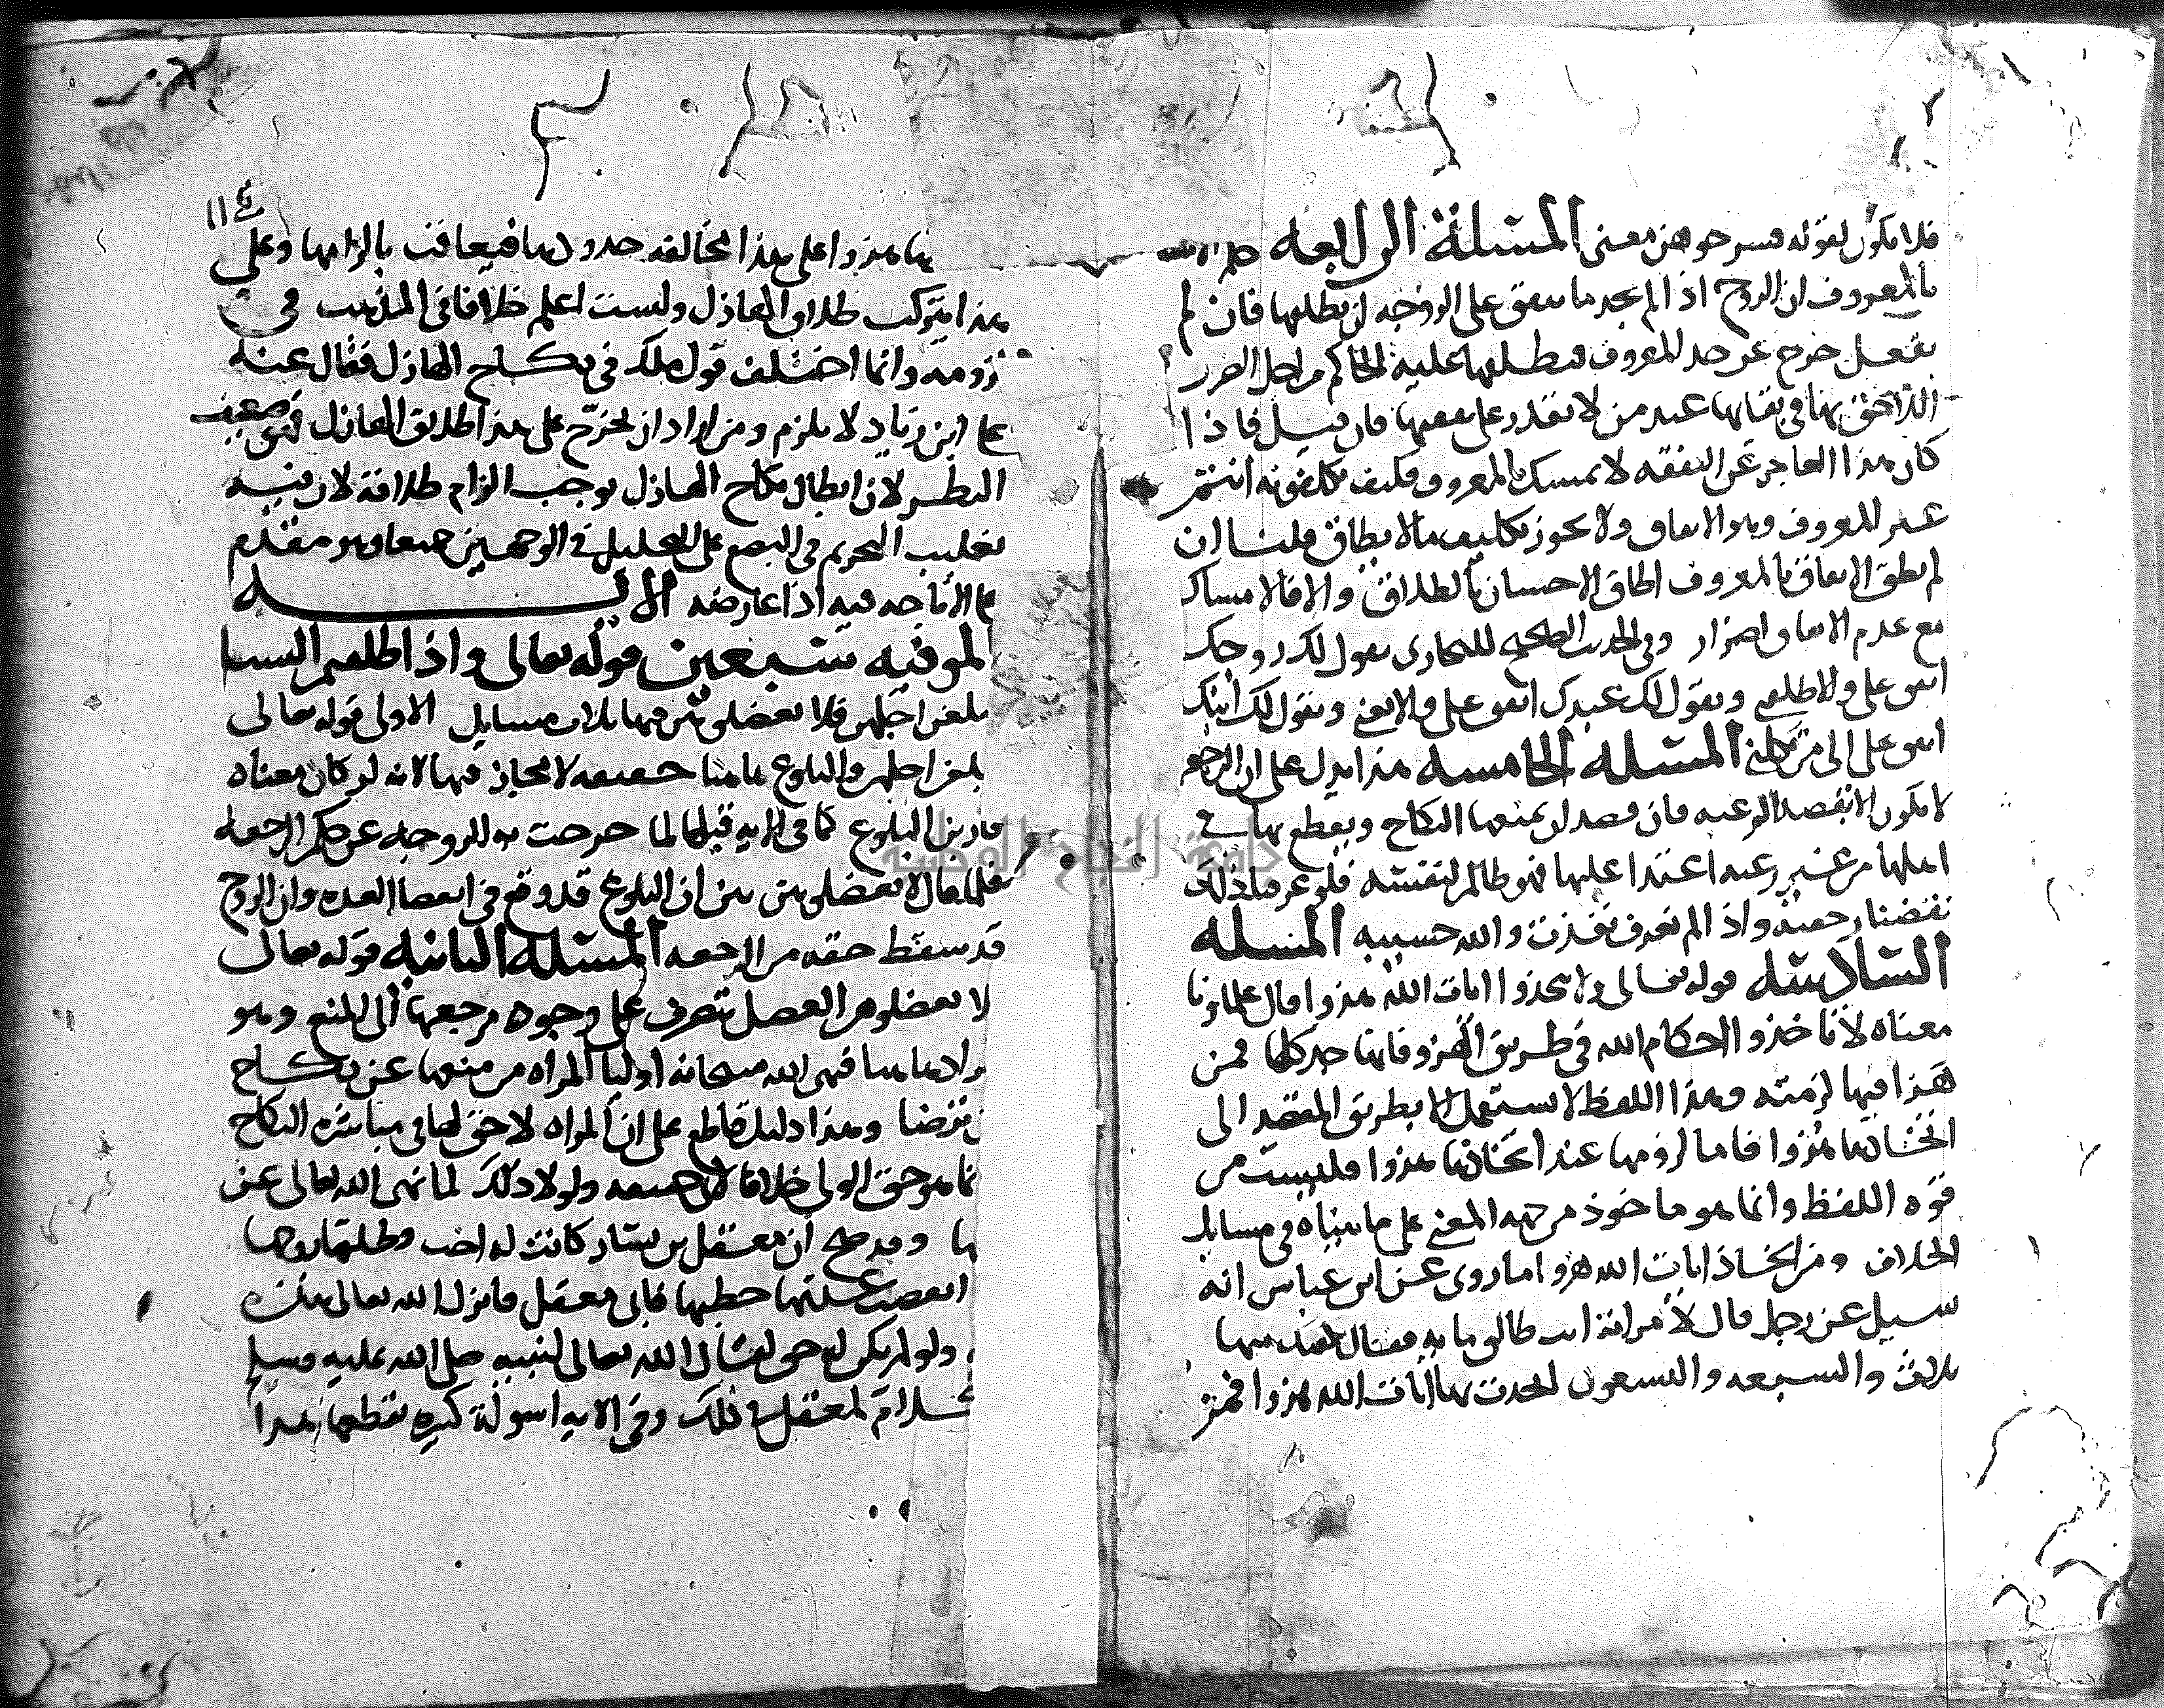 فلا يكون لقوله فسرحوهن معنى المسئلة الرابعة
بالمعروف ان الزوج اذا لم يجد ما ينفق على الزوجه ان يطلقها فان لم
يفعل خرج عن حد المعروف فيطلقها عليه الحاكم من اجل الضرر
اللاحق بها في بقائها عند من لا يقدر على نفقتها فان قيل فاذا
كان هذا العاجز عن النفقه لا يمسك بالمعروف فكيف تكلفونه انتم
غير المعروف وهو الانفاق ولا يجوز تكليف ما لا يطاق قلنا ان
لم يطق الانفاق بالمعروف اطاق الاحسان بالطلاق والا فالامساك
مع عدم الانفاق اضرار وفي الحديث الصحيح للبخاري تقول لك زوجك
انفق علي والا طلقني ويقول لك عبدك انفق علي والا بعني ويقول لك ابنك
انفق علي الى من تكلني المسئله الخامسه هذا يدل على ان الرجعه
لا تكون الا بقصد الرغبه فان قصد ان يمنعها النكاح ويقطع بها في
املها من غير رغبه اعتدا عليها فهو ظالم لنفسه فلو عرفنا ذلك
نقضنا رجعته واذا لم نعرف نفذت والله حسيبه المسئله
السادسه قوله تعالى ولا تتخذوا ايات الله هزوا قال علماونا
معناه لا تاخذوا احكام الله في طريق الهزو فانها جد كلها فمن
هزا فيها لزمته وهذا اللفظ لا يستعمل الا بطريق القصد الى
اتخاذها هزوا فاما لزومها عند اتخاذها هزوا فليست من
قوه اللفظ وانما هو ماخوذ من جهه المعنى على ما بيناه في مسايل
الخلاف ومن اتخاذ ايات الله هزوا ما روى عن ابن عباس انه
سيل عن رجل قال لامراته انت طالق مايه فقال يكفيك منها
ثلاث والسبعه والتسعون اتخذت بها ايات الله هزوا فمن
١١٤
هزوا على هذا مخالفه حدودها فيعاقب بالزامها وعلى
هذا يتركب طلاق الهازل ولست اعلم خلافا في المذهب في
لزومه وانما اختلف قول ملك في نكاح الهازل فقال عنه
على ابن زياد لا يلزم ومن اراد ان يخرج على هذا طلاق الهازل فهو ضعيف
النظر لان ابطال نكاح الهازل يوجب الزام طلاقه لان فيه
تغليب التحريم في البضع على التحليل في الوجهين جميعا وهو مقدم
على الاباحه فيه اذا عارضه الايه
الموفيه سبعين قوله تعالى واذا طلقتم النسا
فبلغن اجلهن فلا تعضلوهن فيها ثلاث مسايل الاولى قوله تعالى
فبلغن اجلهن والبلوغ هاهنا حقيقه لا مجاز فيها لانه لو كان معناه
قاربن البلوغ كما في الايه قبلها لما خرجت به الزوجه عن حكم الرجعه
فلما قال لا تعضلوهن تبين ان البلوغ قد وقع في انقضا العده وان الزوج
قد سقط حقه من الرجعه المسئله الثانيه قوله تعالى
لا تعضلوهن العضل يتصرف على وجوه مرجعها الى المنع وهو
المراد هاهنا فنهى الله سبحانه اوليا المراه من منعها عن نكاح
من ترضا وهذا دليل قاطع على ان المراه لا حق لها في مباشره النكاح
انما هو حق الولي خلافا لابي حنيفه ولولا ذلك لما نهى الله تعالى عن
وقد صح ان معقل بن يسار كانت له اخت فطلقها زوجها
انقضت عدتها خطبها فابى معقل فانزل الله تعالى هذه
ولو لم يكن له حق لقال الله تعالى لنبيه صلى الله عليه وسلم
لا كلام لمعقل في ذلك وفي الايه اسولة كثيره يقطعها هذا